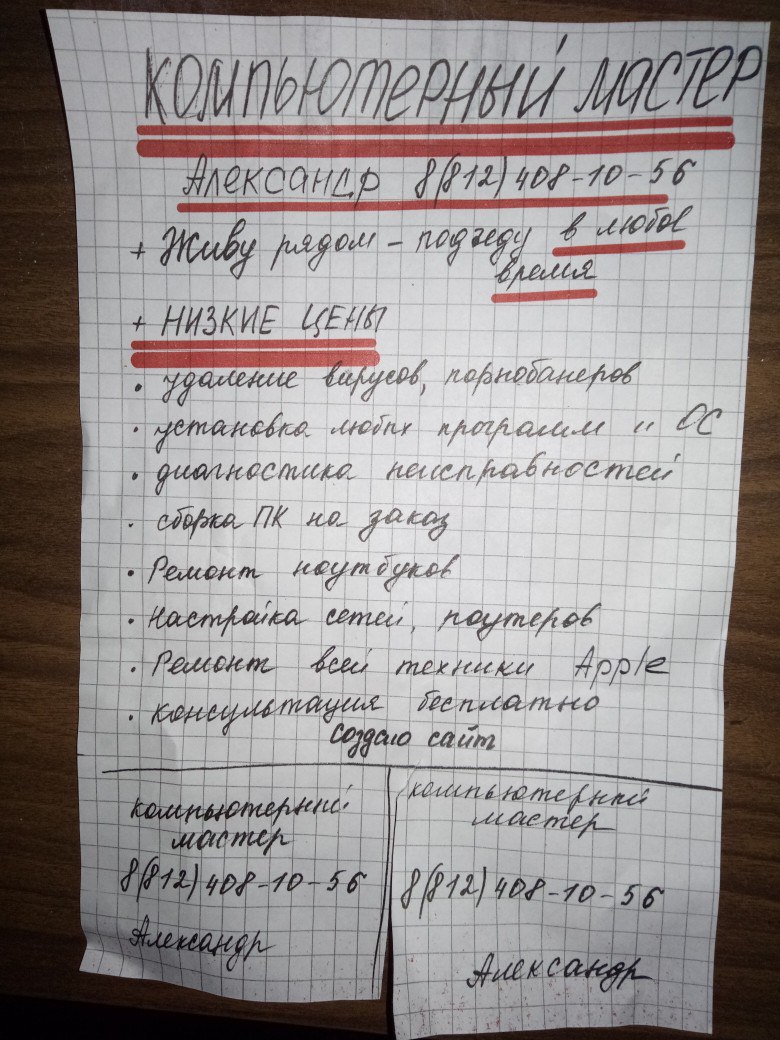 КОМПЬЮТЕРНЫЙ МАСТЕР
Александр 8(812)408-10-56
+ Живу рядом - подъеду в любое
время
+ НИЗКИЕ ЦЕНЫ
· удаление вирусов, порнобанеров
· установка любых программ и ОС
· диагностика неисправностей
· сборка ПК на заказ
· Ремонт ноутбуков
· Настройка сетей, роутеров
· Ремонт всей техники Apple
· консультация бесплатно
Создаю сайт
компьютерный
мастер
8(812)408-10-56
Александр
компьютерный
мастер
8(812)408-10-56
Александр